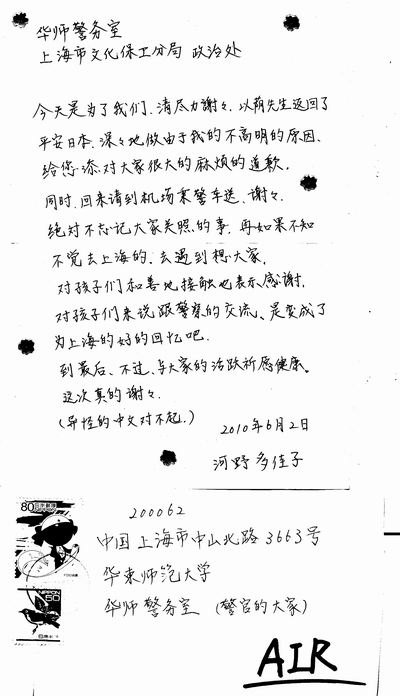 华师警务室
上海市文化保卫分局 政治处
今天是为了我们、清尽力谢々、以前先生返回了
平安日本、深々地做由于我的不高明的原因、
给您添对大家很大的麻烦的道歉。
同时、回来请到机场乘警车送、谢々、
绝对不忘记大家关照的事、再如果不知
不觉去上海的、去遇到想大家。
对孩子们和善地接触也表示感谢。
对孩子们来说跟警察的交流、是变成了
为上海的好的回忆吧。
到最后、不过、与大家的活跃祈愿健康。
这次真的谢々。
(异怪的中文对不起。)
2010年6月2日
河野 多佳子
80
NIPPON
50
200062
中国上海市中山北路3663号
华东师范大学
华师警务室 (警官的大家)
AIR